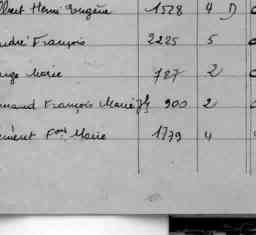 lbert Henri Eugène 1528 4 D
André François 2225 5
ange Marie 787 2
mand François Marie 900 2
ément Fois Marie 1879 4